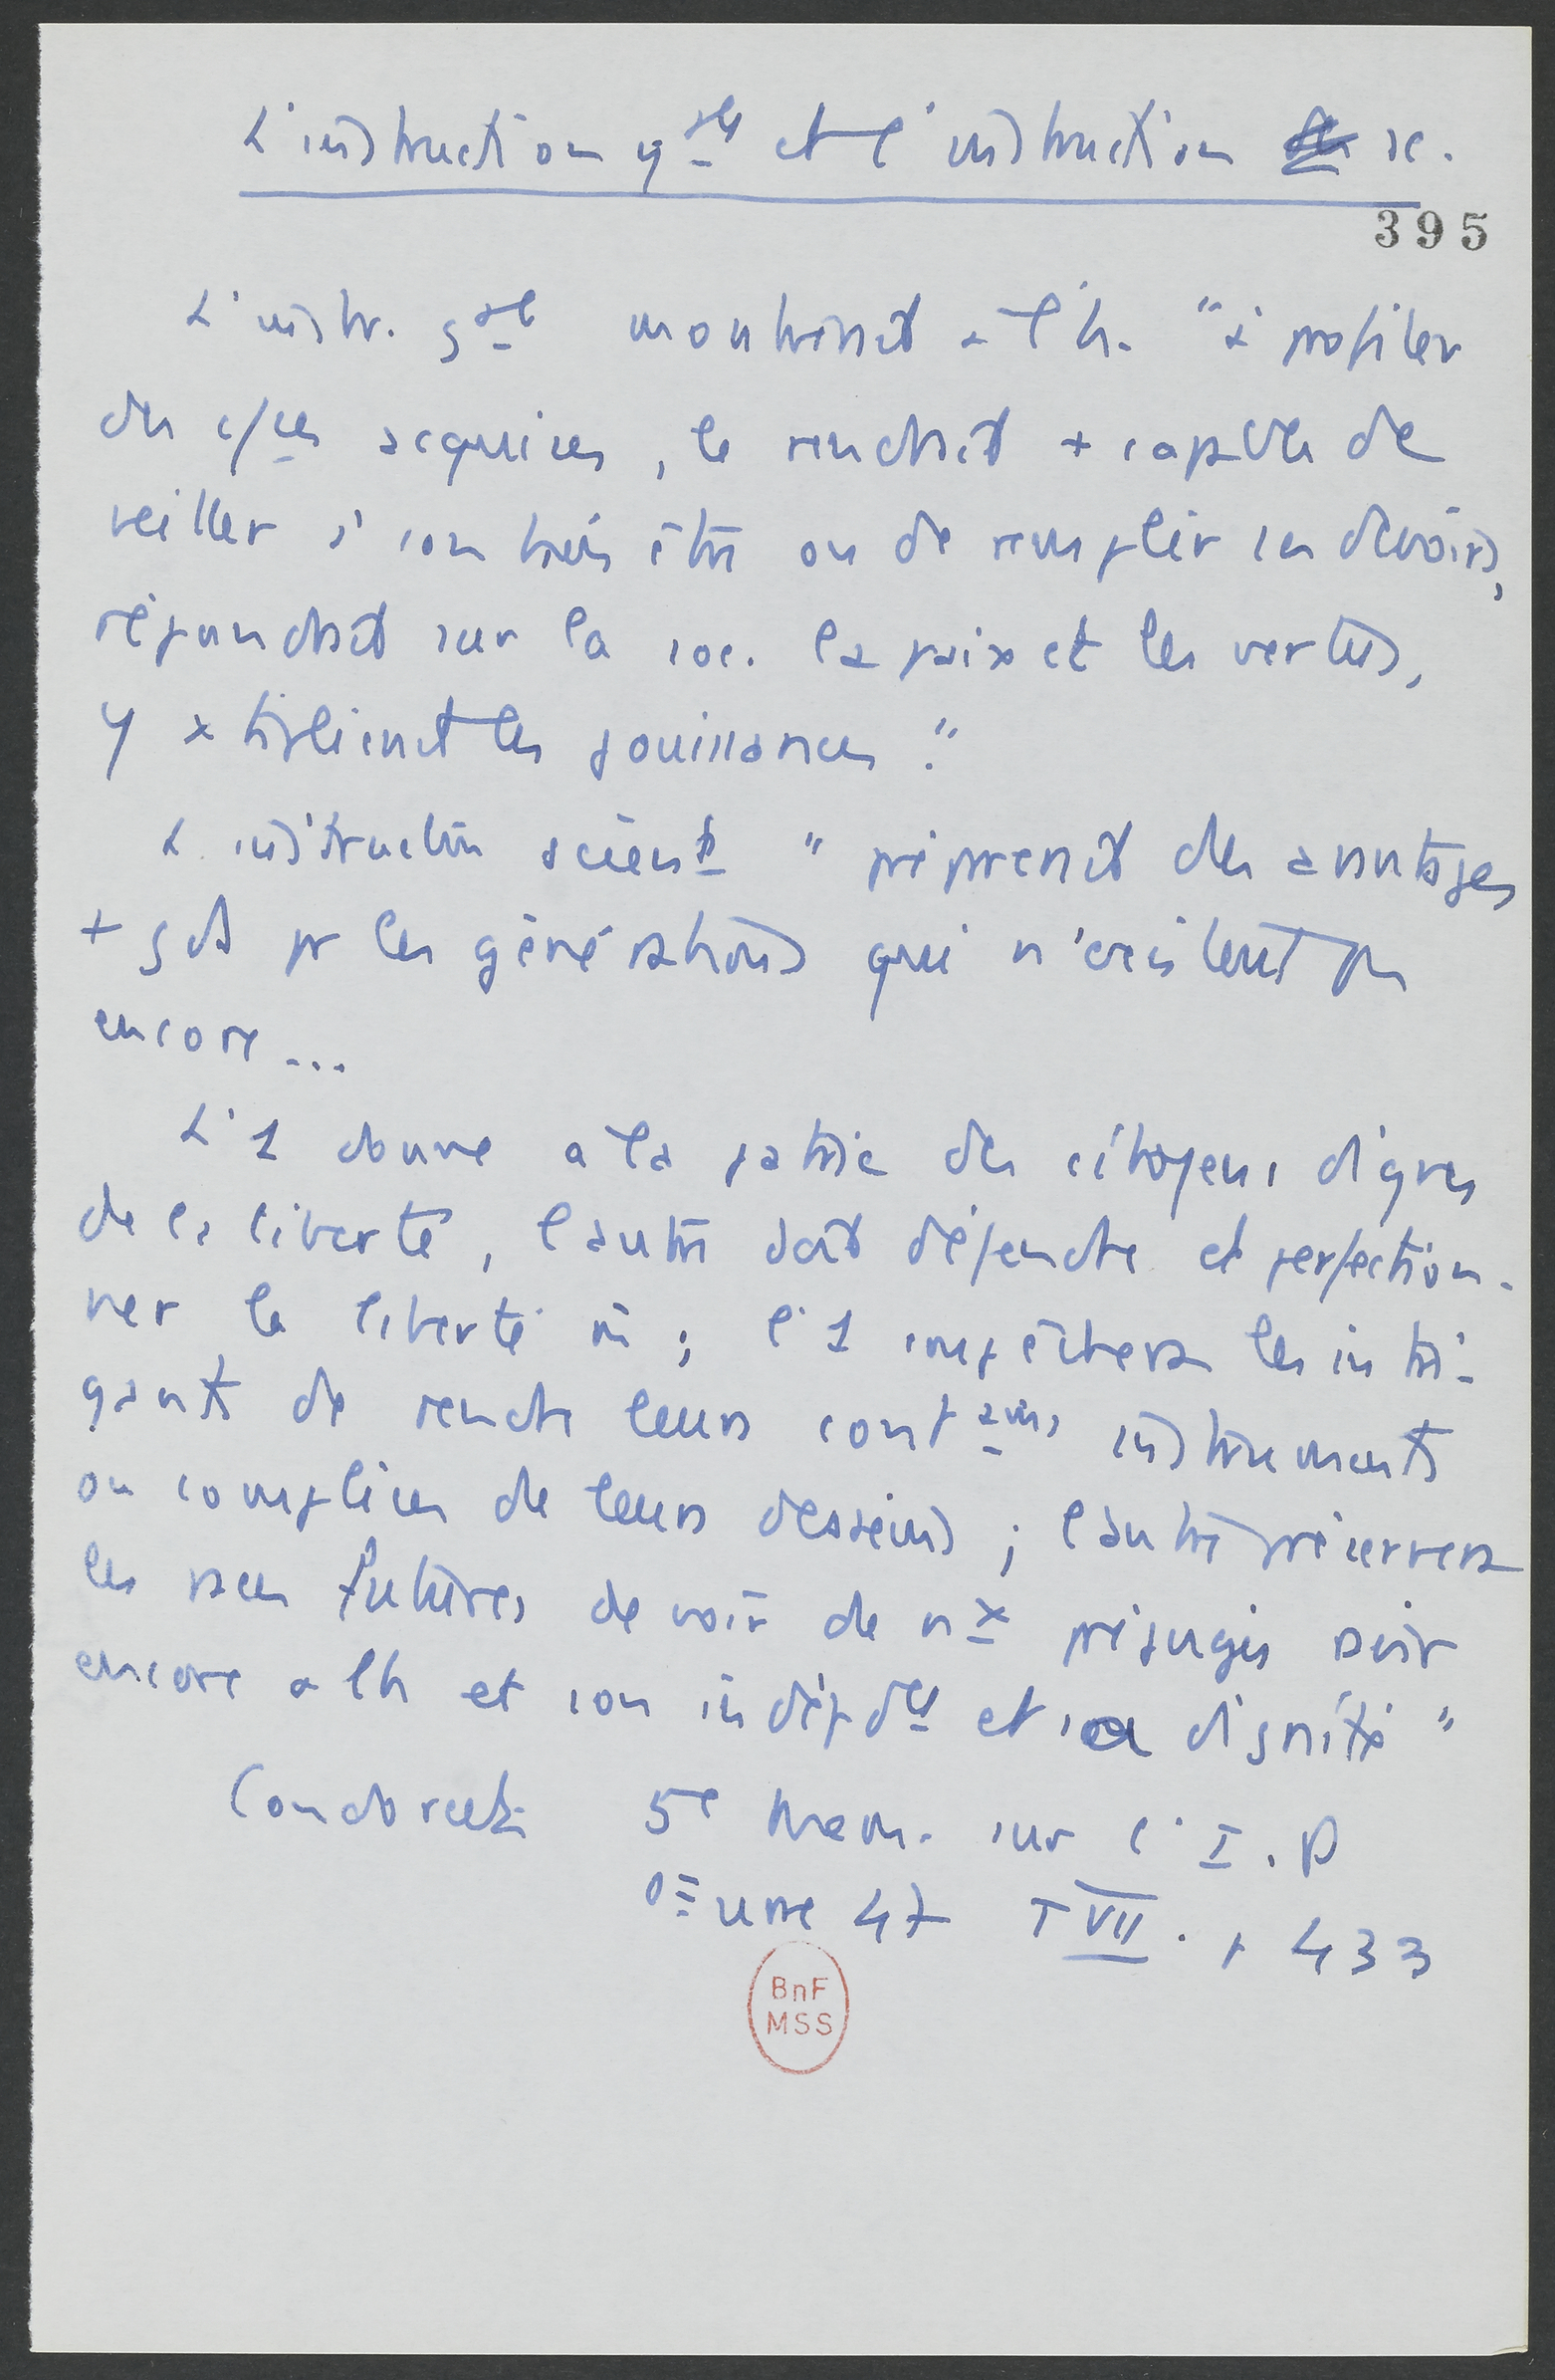 L'instruction gale et l'instruction sc.
395
L'instr. gale montrait à l'h. "à profiter
des c/ces acquises, le rendrait + capable de
veiller à son bien être ou de remplir ses devoirs,
répandrait sur la soc. la paix et les vertus,
y x tiplierait les jouissances."
L'instruction scientf " préparerait des avantages
+ gds pr les générations qui n'existent pas
encore...
L'1 donne à la patrie des citoyens dignes
de la liberté, l'autre doit défendre et perfection-
ner la liberté m̄ ; l'1 empêchera les intri-
gants de rendre leurs contains instruments
ou complices de leurs desseins ; l'autre préservera
les races futures de voir de nx préjugés ravir
encore à l'h et son indépdce et sa dignité "
Condorcet 5e mem. sur l'I. P
Œuvre 47 T VII. p 433
BnF
MSS